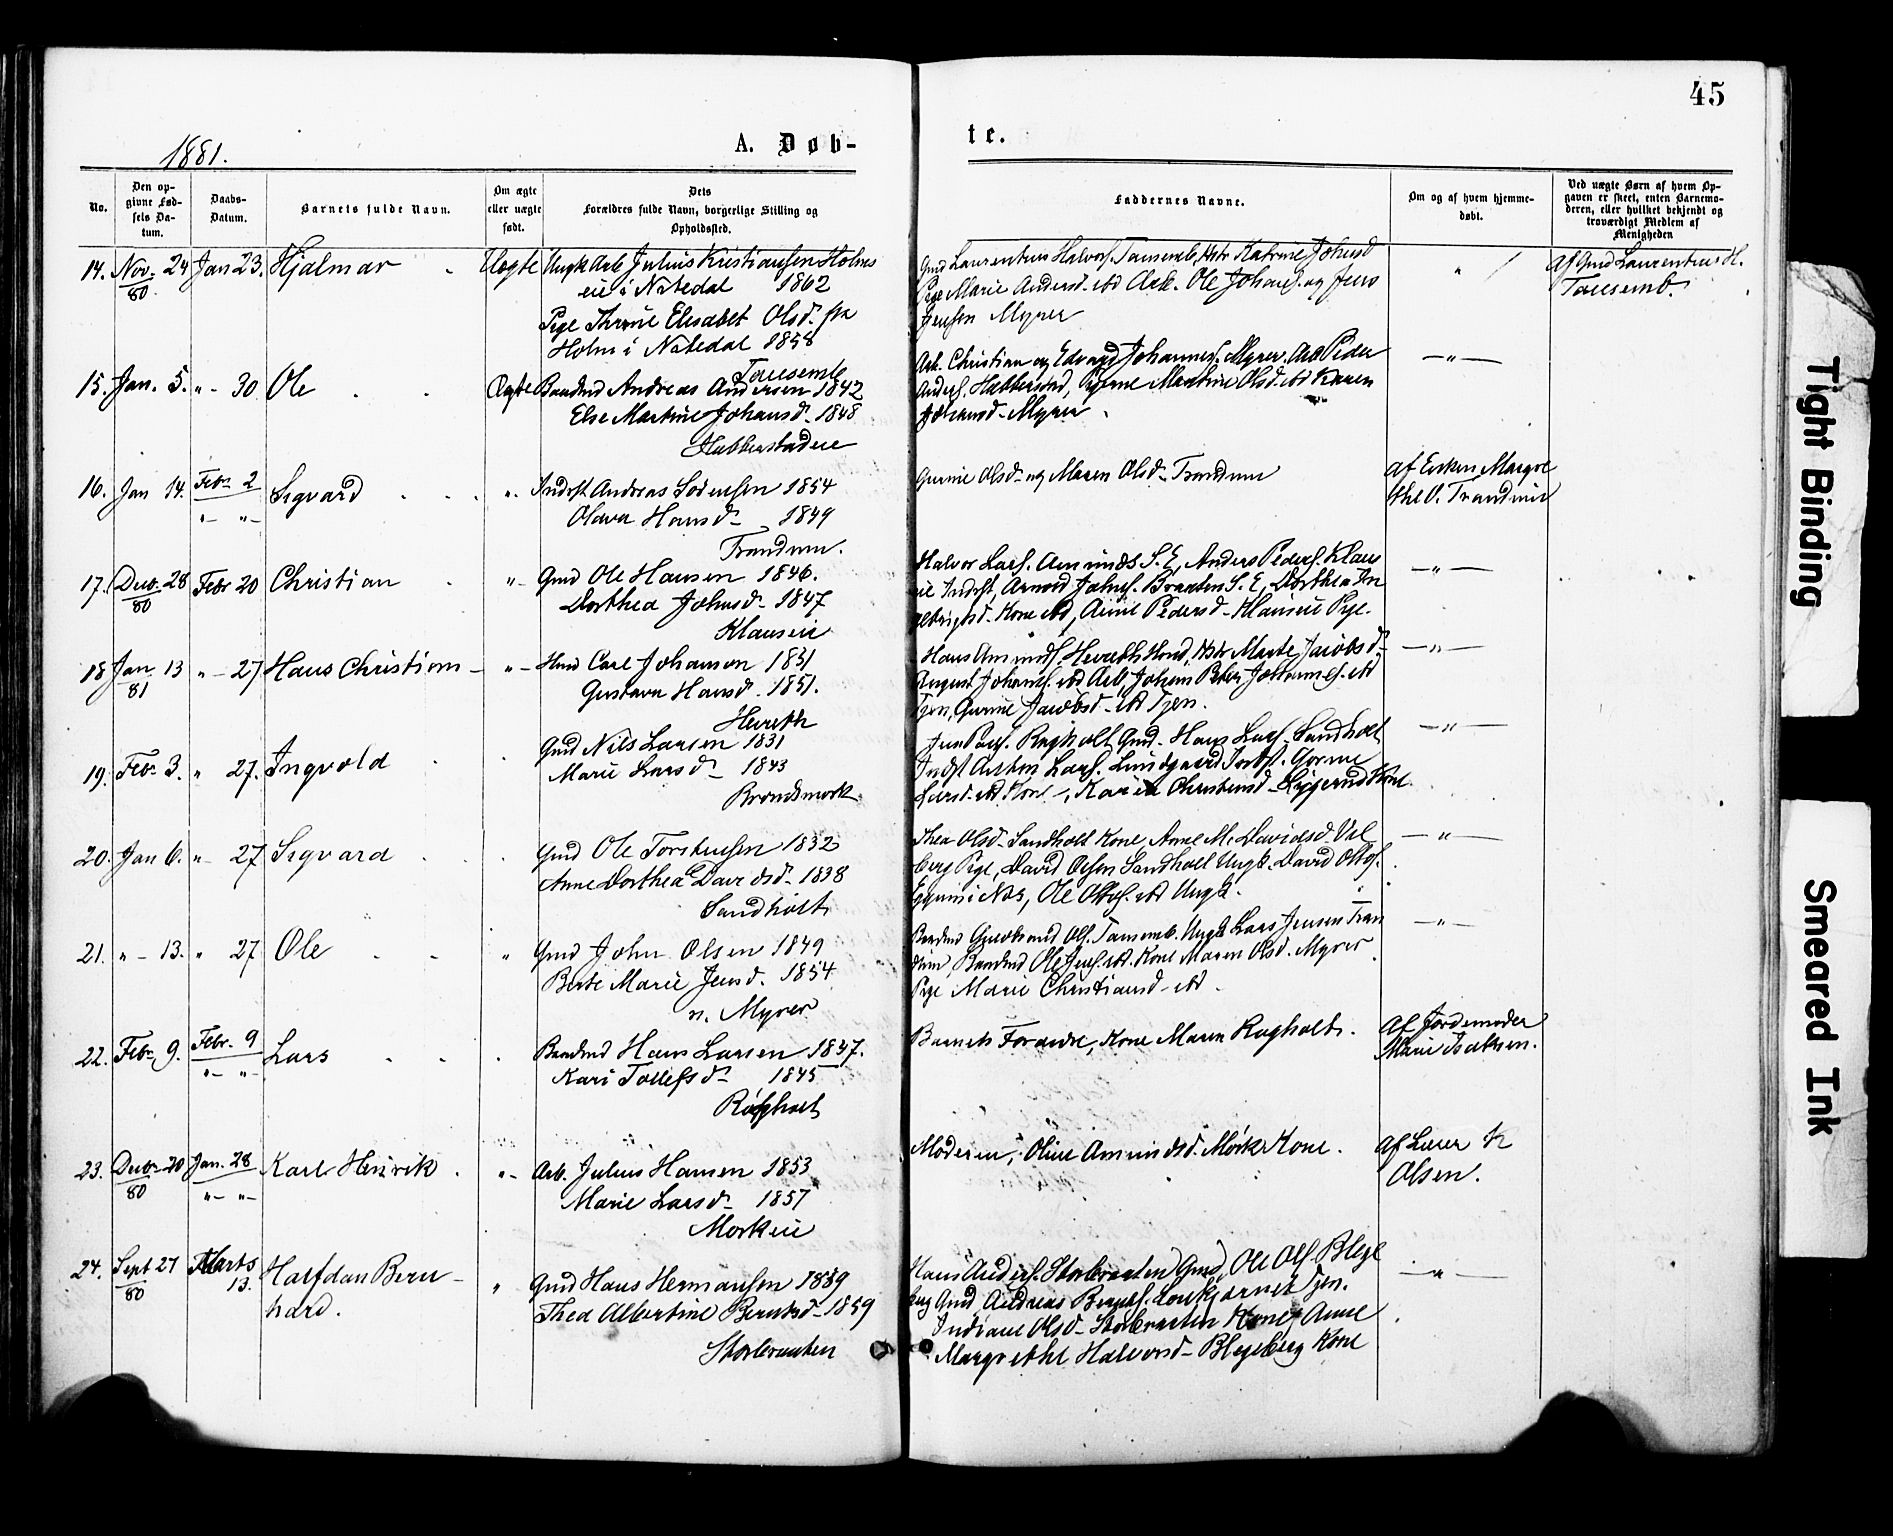 45
1881.
A. Døb-
te.
No.
Den op-
givne Fød-
sels Da-
tum.
Daabs-
Datum.
Barnets fulde Navn.
Om ægte
eller uægte
født.
Dets
Forældres fulde Navn, borgerlige Stilling og
Opholdssted.
Faddernes Navne.
Om og af hvem hjemme-
døbt.
Ved uægte Børn af hvem Op-
gaven er skeet, enten Barnemo-
deren, eller hvilket bekjendt og
troværdigt Medlem af
Menigheden
14. Nov. 24 Jan 23. Hjalmar Uægte Ungk Arb Julius Kristiansen Holms
80. eie i Natedal 1862
Pige Elisabet Olsd. fra
Holm i Natedal 1858
Gmd Laurentius Halvors. Tausemb, Katrine Johnsd
Pige Marie Andersd. ibd Arb. Ole Johans. og Jens
Jensen Myrer
af Gmd Laurentius H.
Tausemb.
15. Jan. 5. "- 30 Ole Ægte Baadmd Andreas Andersen 1842
Tausemb
Else Martine Johansd. 1848
Habberstadeie
Arb. Christian og Edvard Johannes. Myrer Arb Peder
Anders. Habberstad, Pigerne Martine Olsd. ibd Karen
Johansd. Myrer
—"—
16. Jan 14. Febr 2 Sigvard "- Indrst Andreas Sørensen 1854
"- "-
Olava Hansd. 1849
Trandum.
Gunnie Olsd. og Maren Olsd. Trandum
af Enken Margre
the O. Trandum
17. Decbr. 28 Febr 20 Christian "- Gmd Ole Hansen 1846.
80
Dorthea Johnsd. 1847
Klauseie
Halvor Lars. Amunds S. E, Anders Peders. Klaus
eie Indrst, Arnold Johns. Braaten S. E, Dorthea In
gebrigtsd. Kone ibd, Anne Pedersd. Pige.
—"—
18 Jan 13 "- 27 Hans Christian "- Hmd Carl Johansen 1831
81
Gustava Hansd. 1851.
Hans Amunds. Marte Jacobsd.
August Johans. ibd Arb, Johan Peter Johannes. ibd
Tjen, Gunnie Jacobsd. ibd Tjen.
—"—
19. Febr 3. " 27. Ingvold Gmd Nils Larsen 1831
Marie Larsd. 1843
Brandsmork
Ragholt Gmd. Hans Lars. Sandholt
Indst Anton Lars. Lundgaard
Larsd. ibd Kone, Karen Christensd. Kone.
—"—
20. Jan 6. "- 27 Sigvard Gmd Ole Torstensen 1832
Anne Dorthea Davidsd. 1838
Sandholt
Thea Olsd. Sandholt Kone, Anne M. Davidsd. Val
berg Pige, David Olsen Sandholt Ungk. David Ottos.
i Næs, Ole Ottos. ibd Ungk.
—"—
21. "- 13. " 27 Ole " Gmd John Olsen 1849
Berte Marie Jensd. 1854
n. Myrer
Baadmd Gudbrand Ols. Tausemb. Ungk Lars Jensen Tran
dum, Baadmd Ole Jens. ibd. Kone Maren Olsd. Myrer
Pige Marie Christiansd. ibd
—"—
22. Febr. 9. Febr. 9 Lars Baadmd Hans Larsen 1847.
"- "-
Kari Tollefsd. 1845
Ragholt
Barnets Forældre, Kone Maren Ragholt.
af Jordemoder
Marie Isaksen.
23. Decbr. 20 Jan. 28 Karl Henrik "- Arb. Julius Hansen 1853
80 "- "-
Marie Larsd. 1857
Morkeie
Moderen, Oline Amundsd. Mørk Kone.
af Lærer K
Olsen.
24. Sept 27 Marts Halfdan Bern-
80 13. hard. " Gmd Hans Hermansen 1839
Thea Albertine Berntsd. 1859
Storbraaten
Hans Anders. Storbraaten Gmd, Ole Ols. Blege
berg Gmd Andreas Bernts. Tjen.
Indiane Olsd. Storbraaten Kone, Anne
Margrethe Halvorsd. Blegeberg Kone
—"—
Tight Binding
Smeared Ink